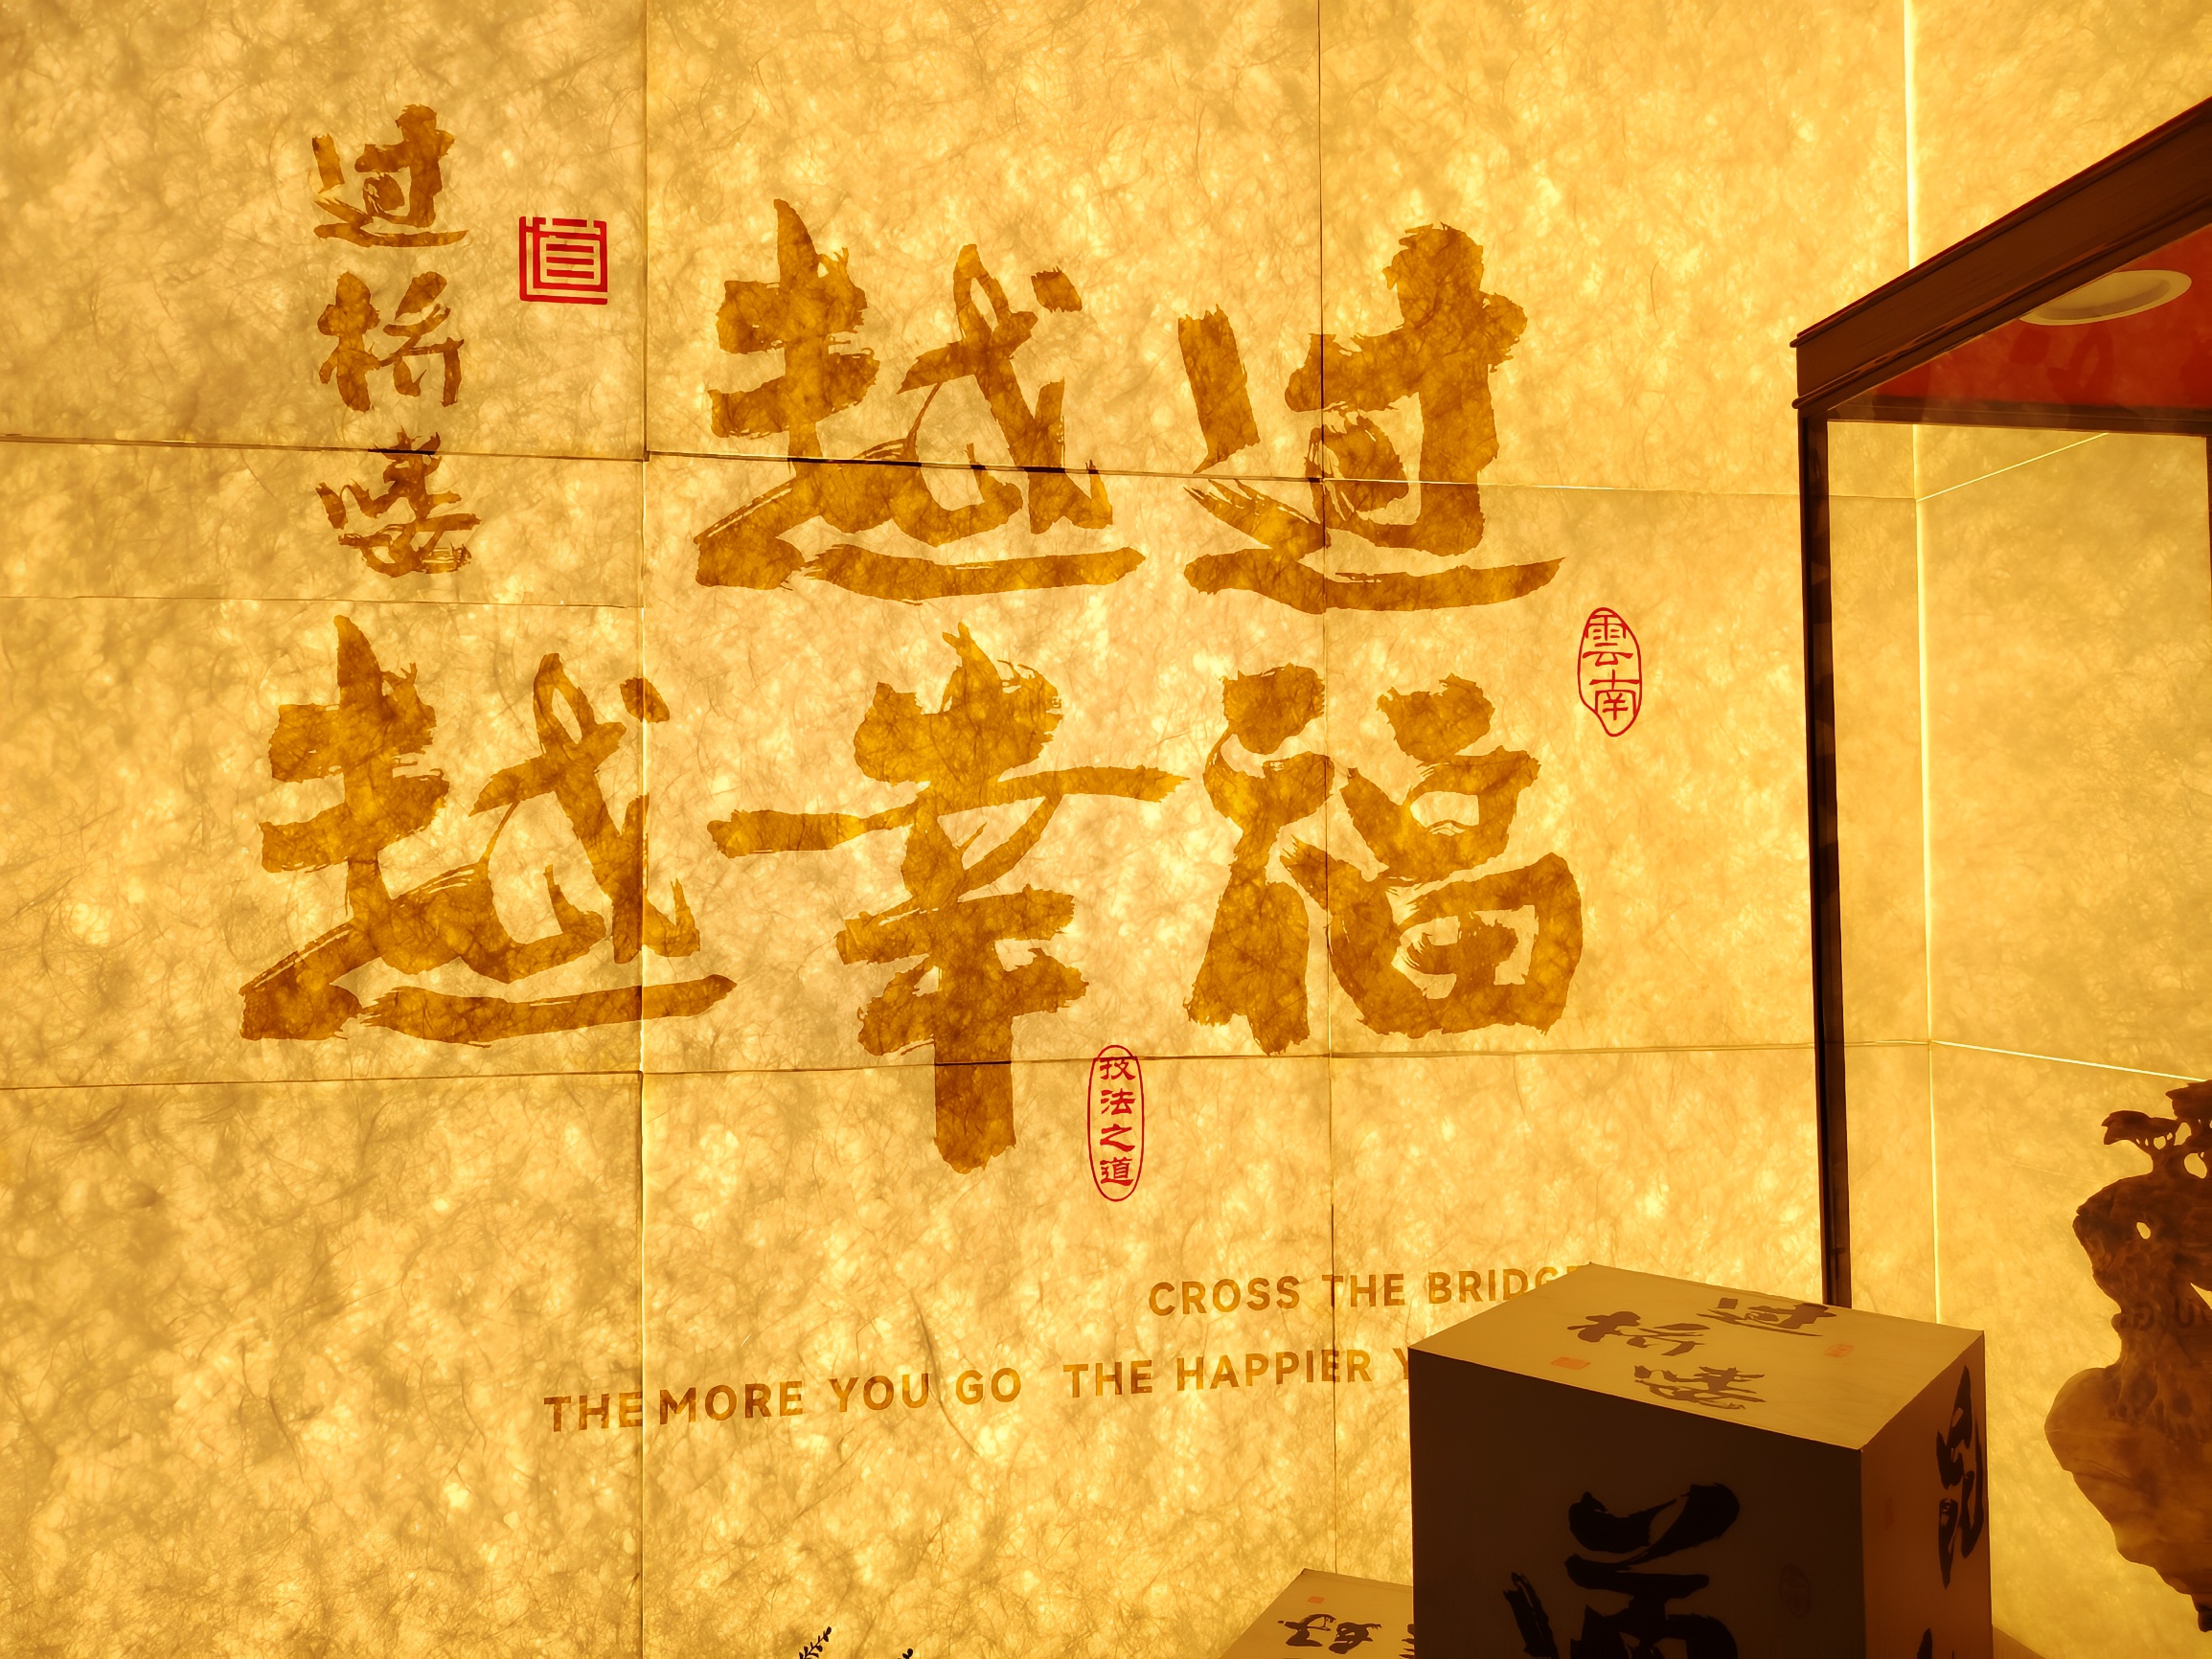 过桥喽
道
越过
越幸福
雲南
技法之道
CROSS THE BRIDG
THE MORE YOU GO THE HAPPIER Y
过
桥
喽